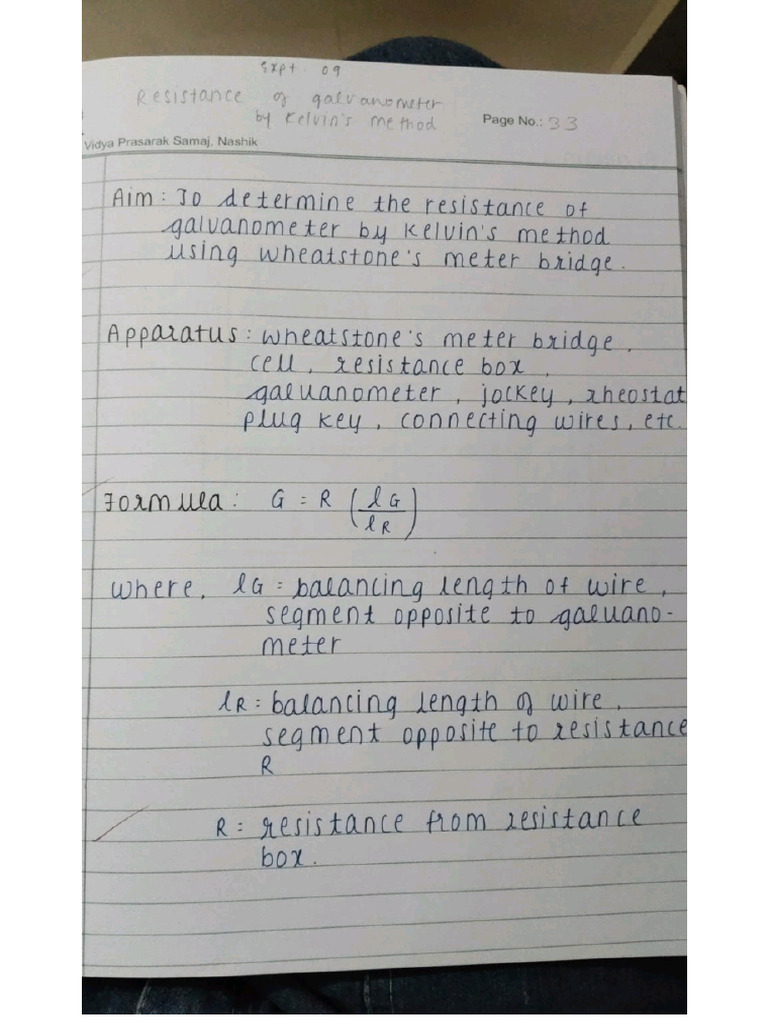 Expt. 09
Resistance of galvanometer
by Kelvin's method
Page No.: 33
Vidya Prasarak Samaj, Nashik
Aim: To determine the resistance of
galvanometer by Kelvin's method
using wheatstone's meter bridge.
Apparatus: wheatstone's meter bridge,
cell, resistance box,
galvanometer, jockey, rheostat
plug key, connecting wires, etc.
Formula: G = R (lG/lR)
where, lG = balancing length of wire,
segment opposite to galvano-
meter
lR = balancing length of wire,
segment opposite to resistance
R
R = resistance from resistance
box.